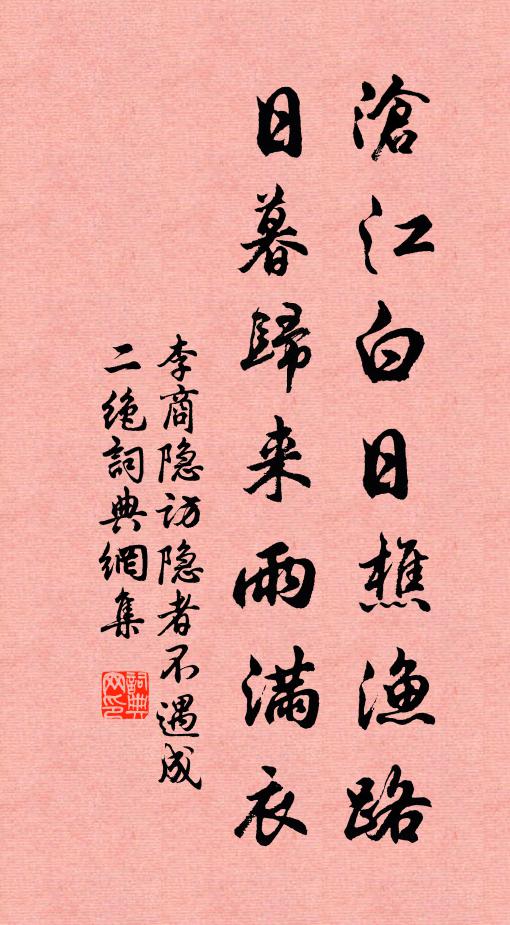 滄江白日樵漁路
日暮歸来雨滿衣
李商隐访隐者不遇成
二绝詞典網集
詞典網印